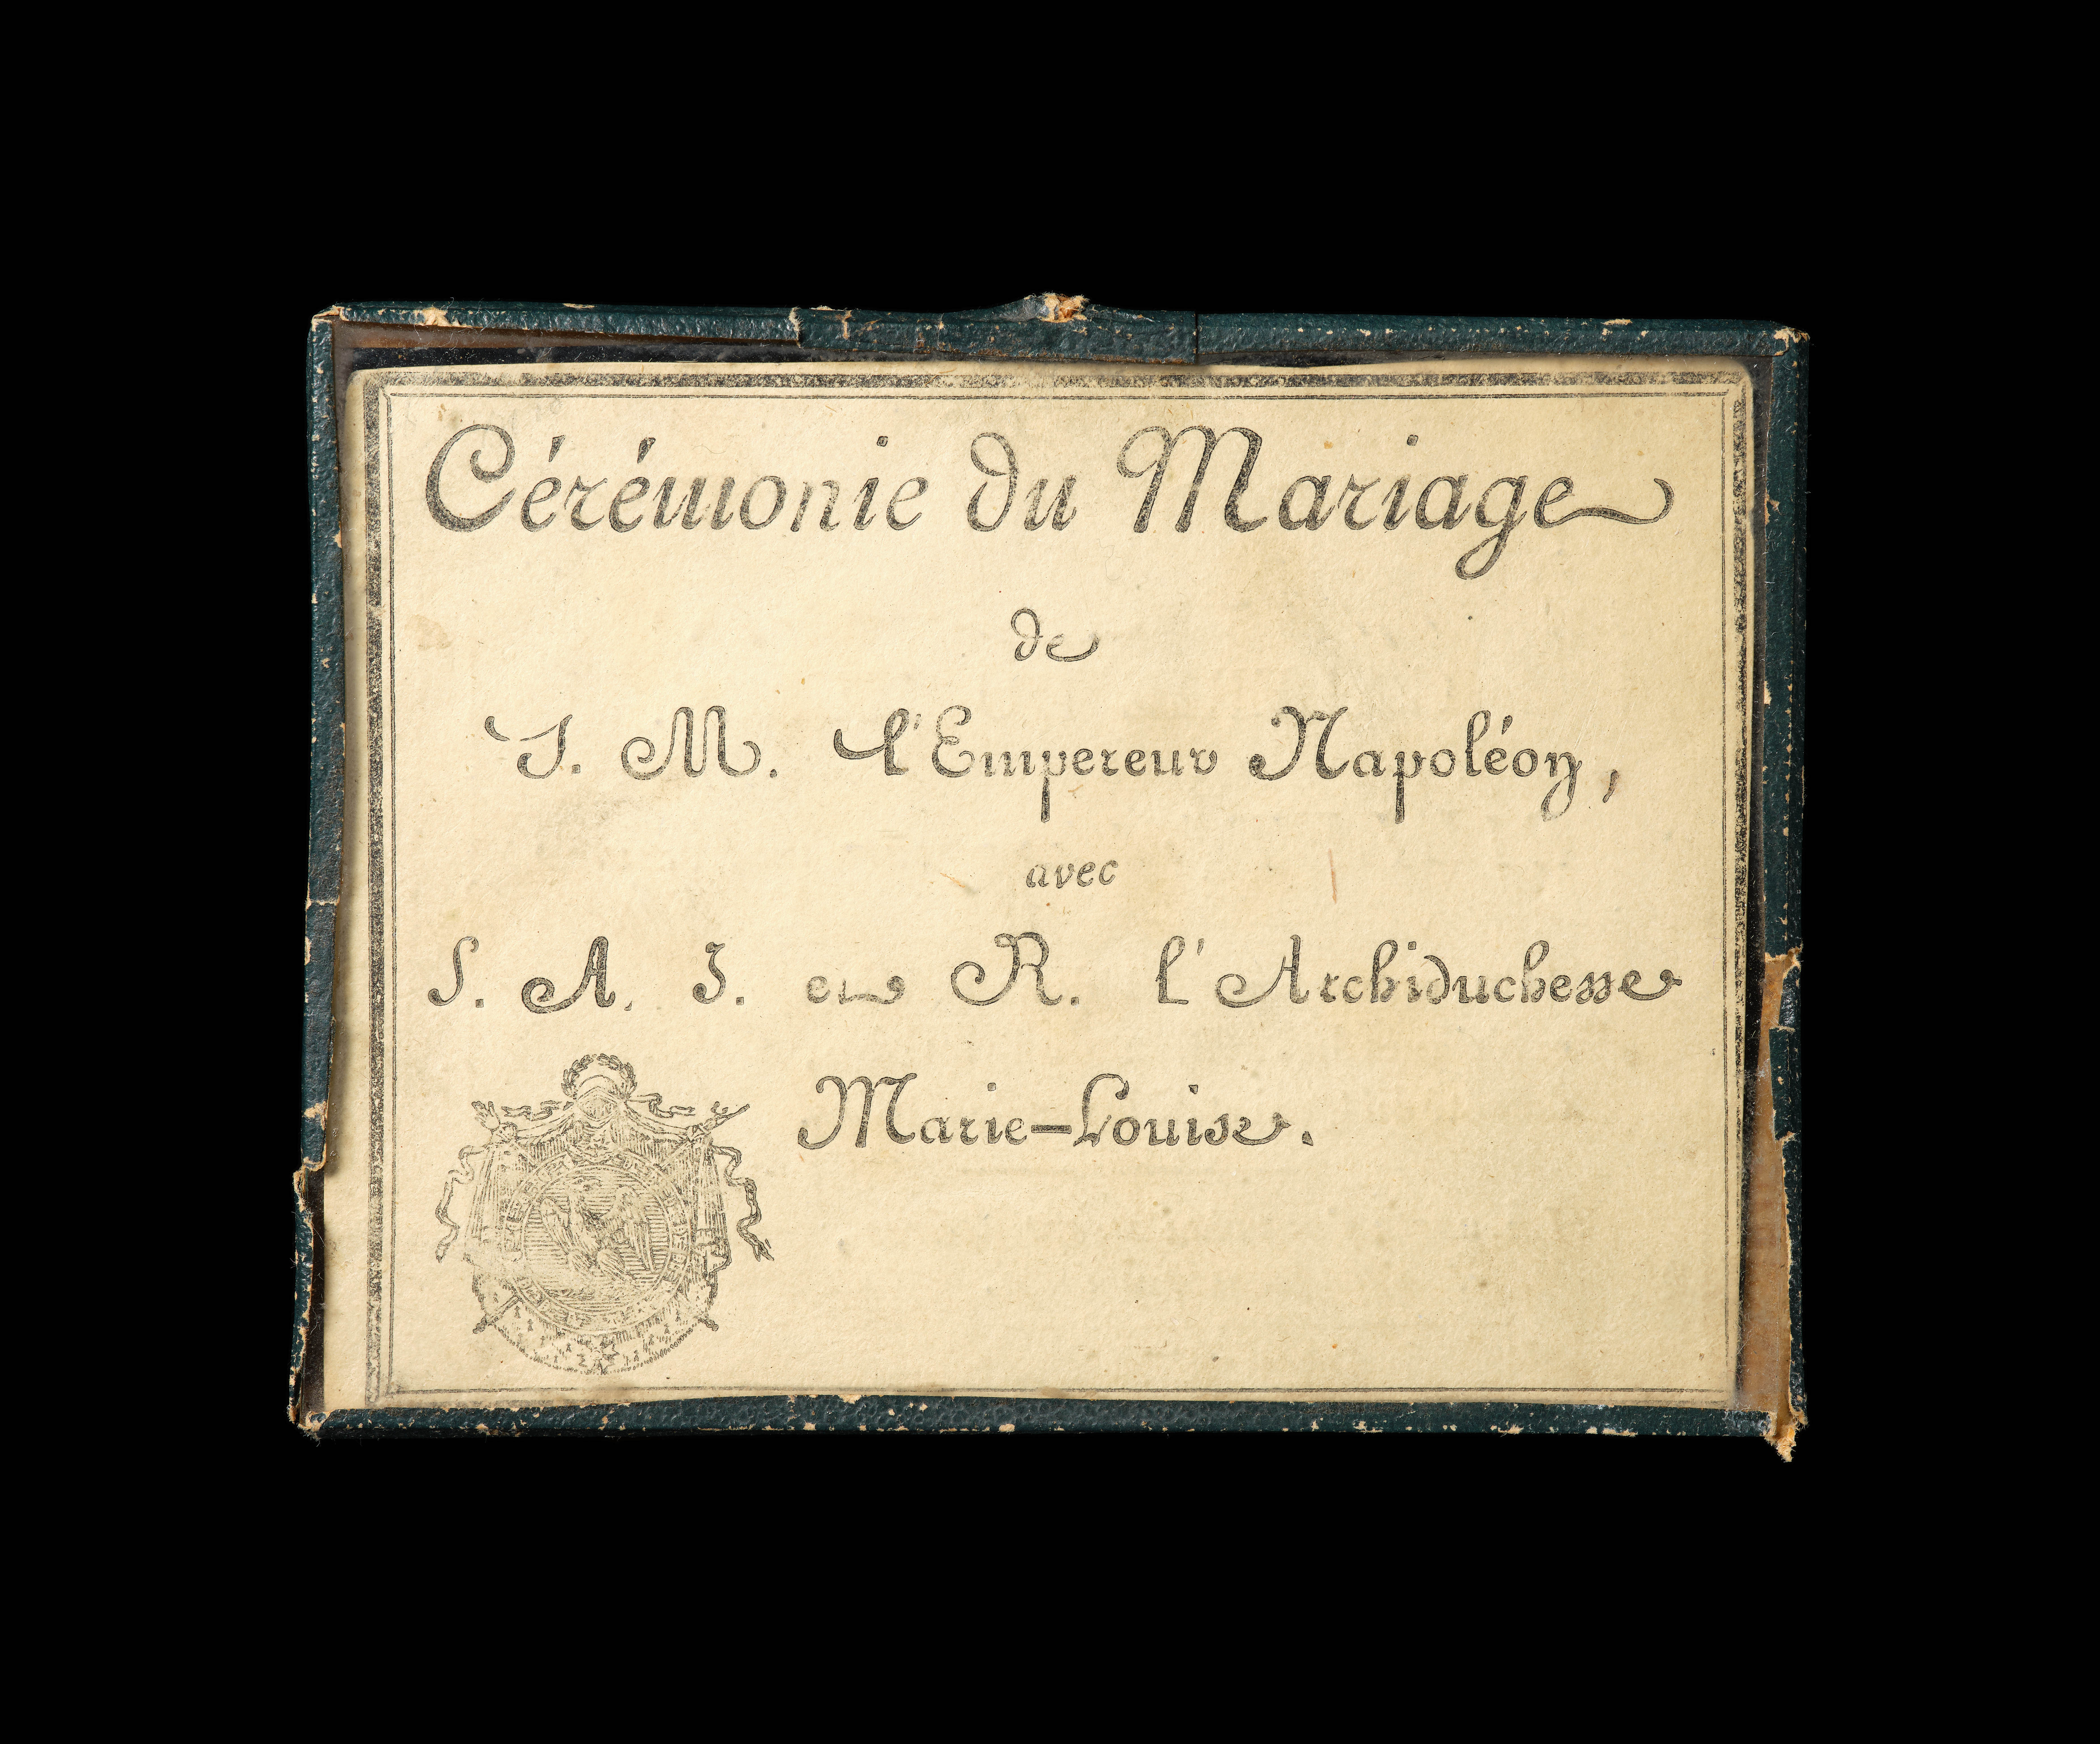 Cérémonie du Mariage
de
S. M. l'Empereur Napoléon,
avec
S. A. I. et R. l'Archiduchesse
Marie-Louise.